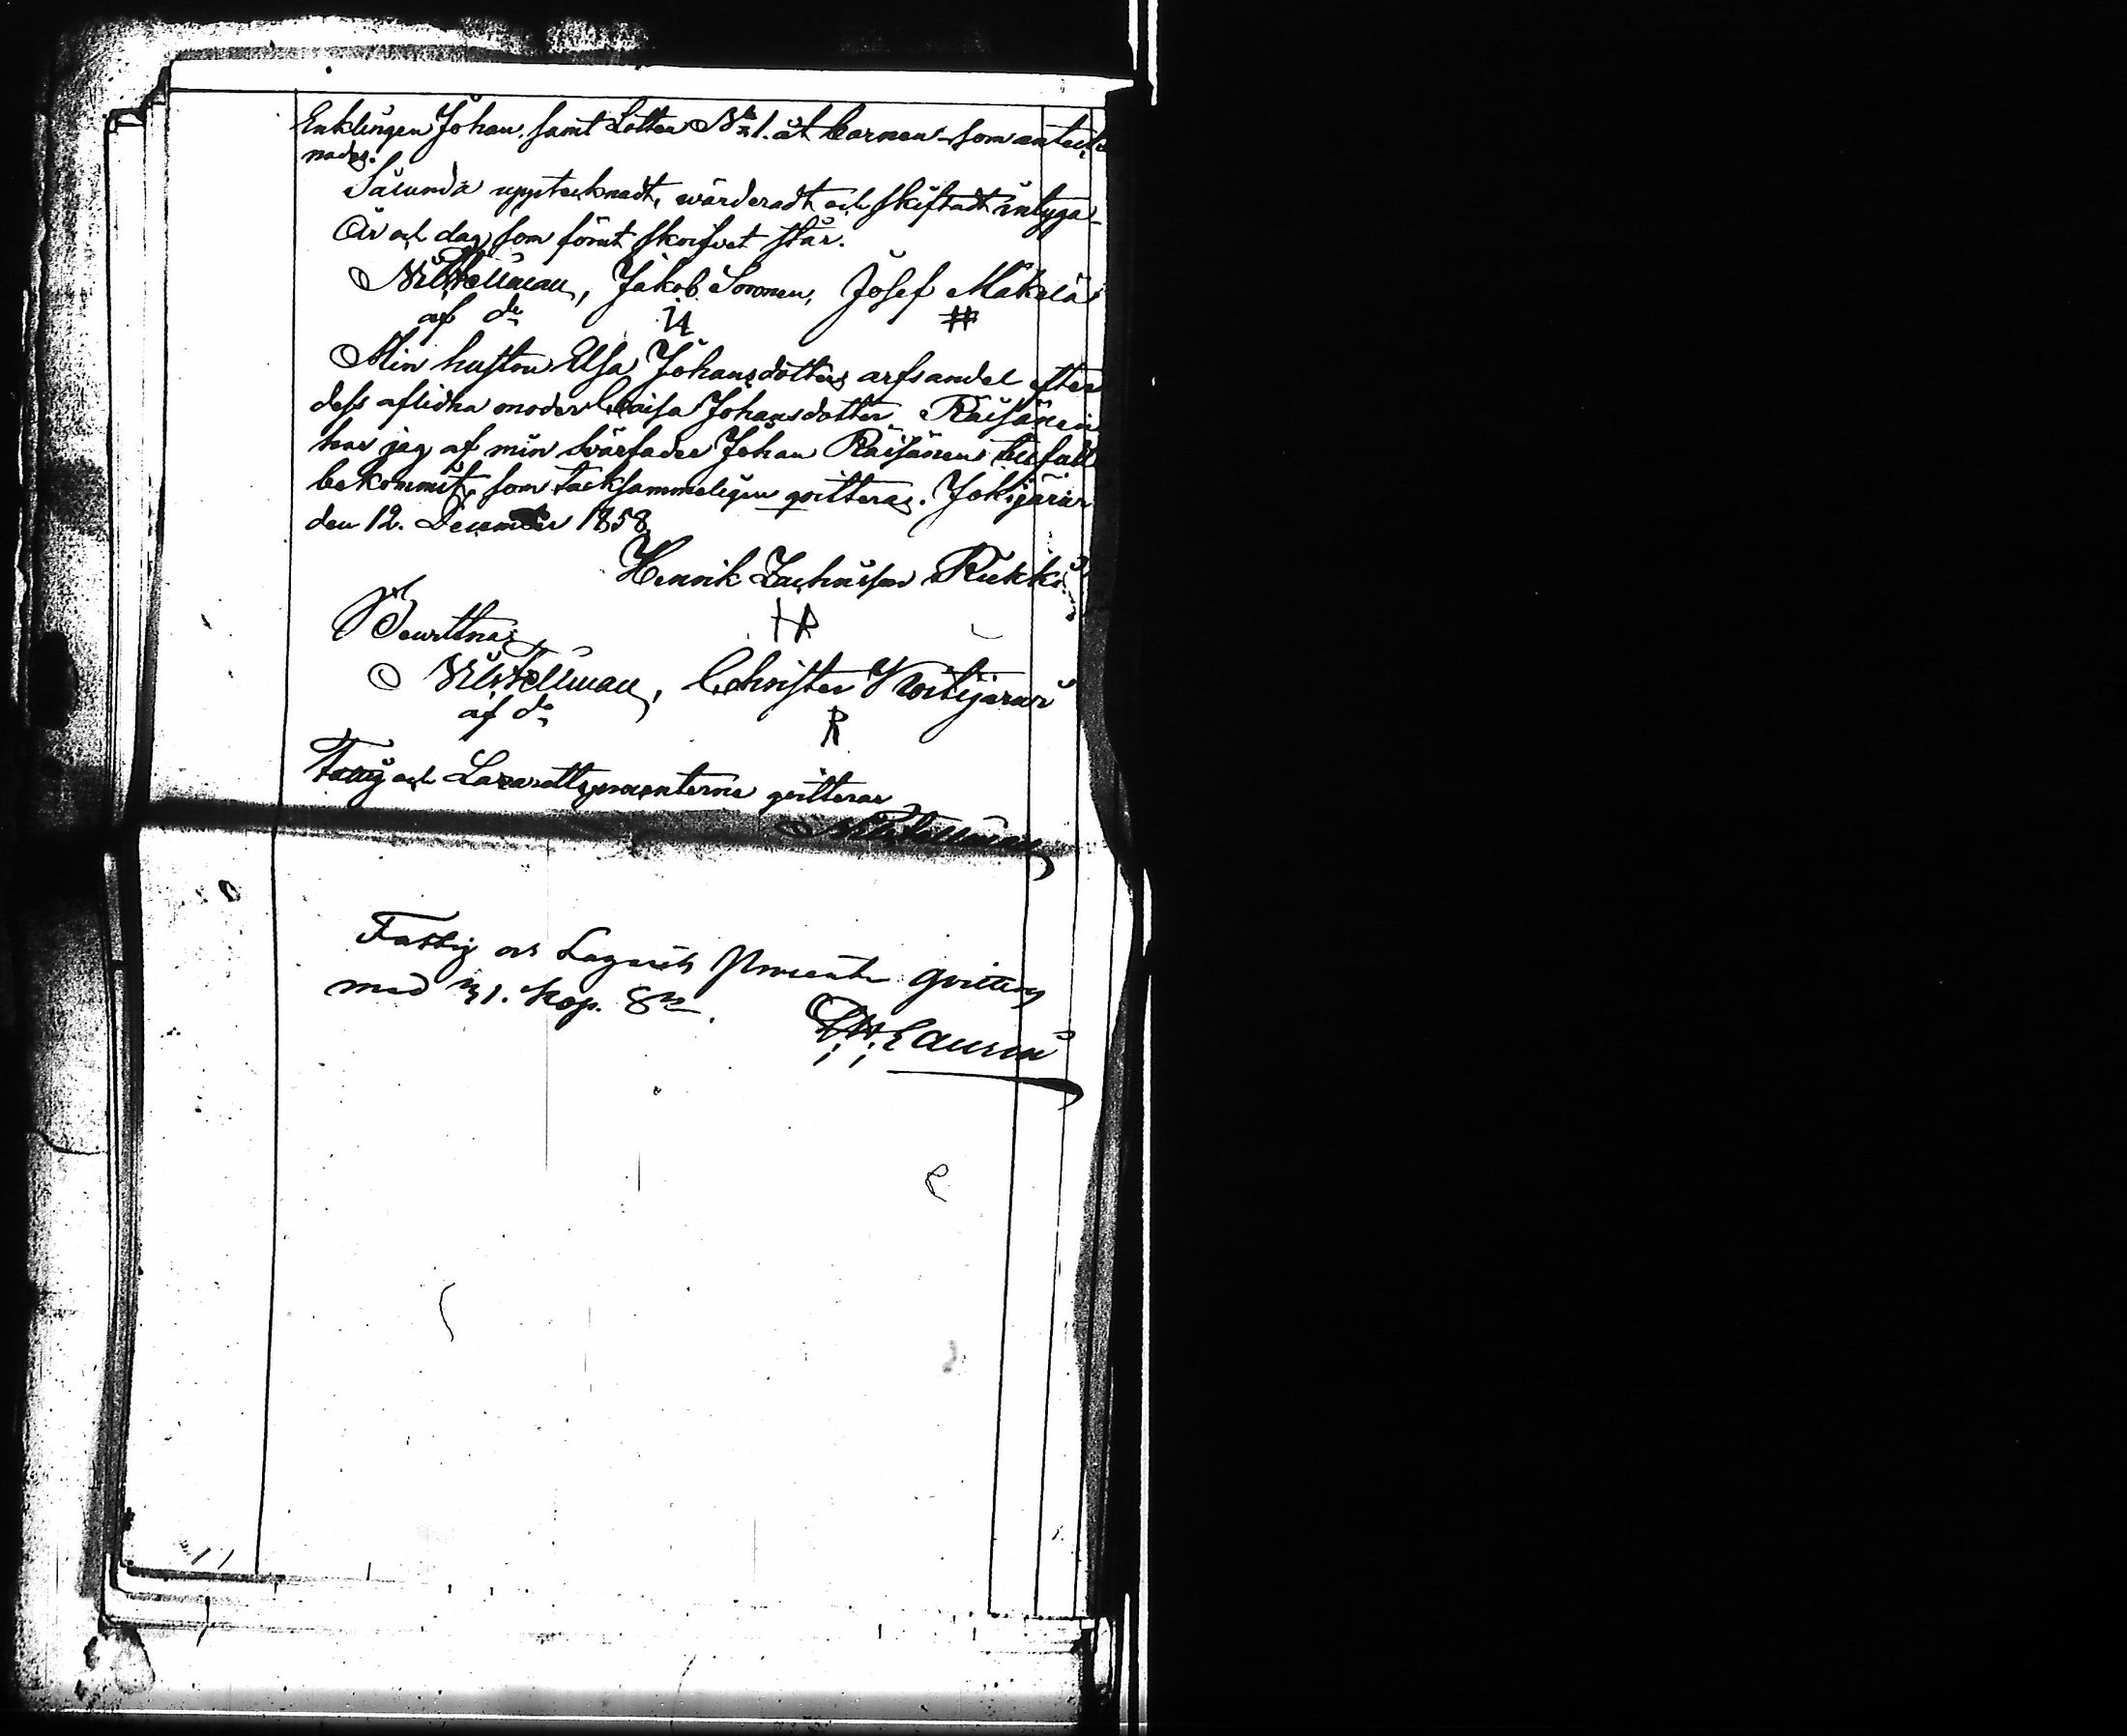 Enklingen Johan, samt Lotten No 1. åt barnen som anteck-
nades.
Sålunda upptecknadt, värderadt och skiftadt intyga
År och dag som förut skrifvet står.
Nils Fellman, Jakob Soronen, Josef Mäkelä
af do
Min hustru Elsa Johansdotters arfsandel efter
dess aflidna moder Caisa Johansdotter Räisänen
har jag af min svärfader Johan Räisänen till fullo
bekommit, som tacksammeligen qvitteras. Jokijärvi
den 12. December 1858.
Henrik Zachrisson Rukki
HR
Bevittna:
Nils Fellman, Christer Voitjärvi
af do R
Fattig och Lazaretts procenterne qvitteras
Nils Fellman
Fattig och Lazaretts procenter qvitteras
med 31. kop. Sr
Lauren